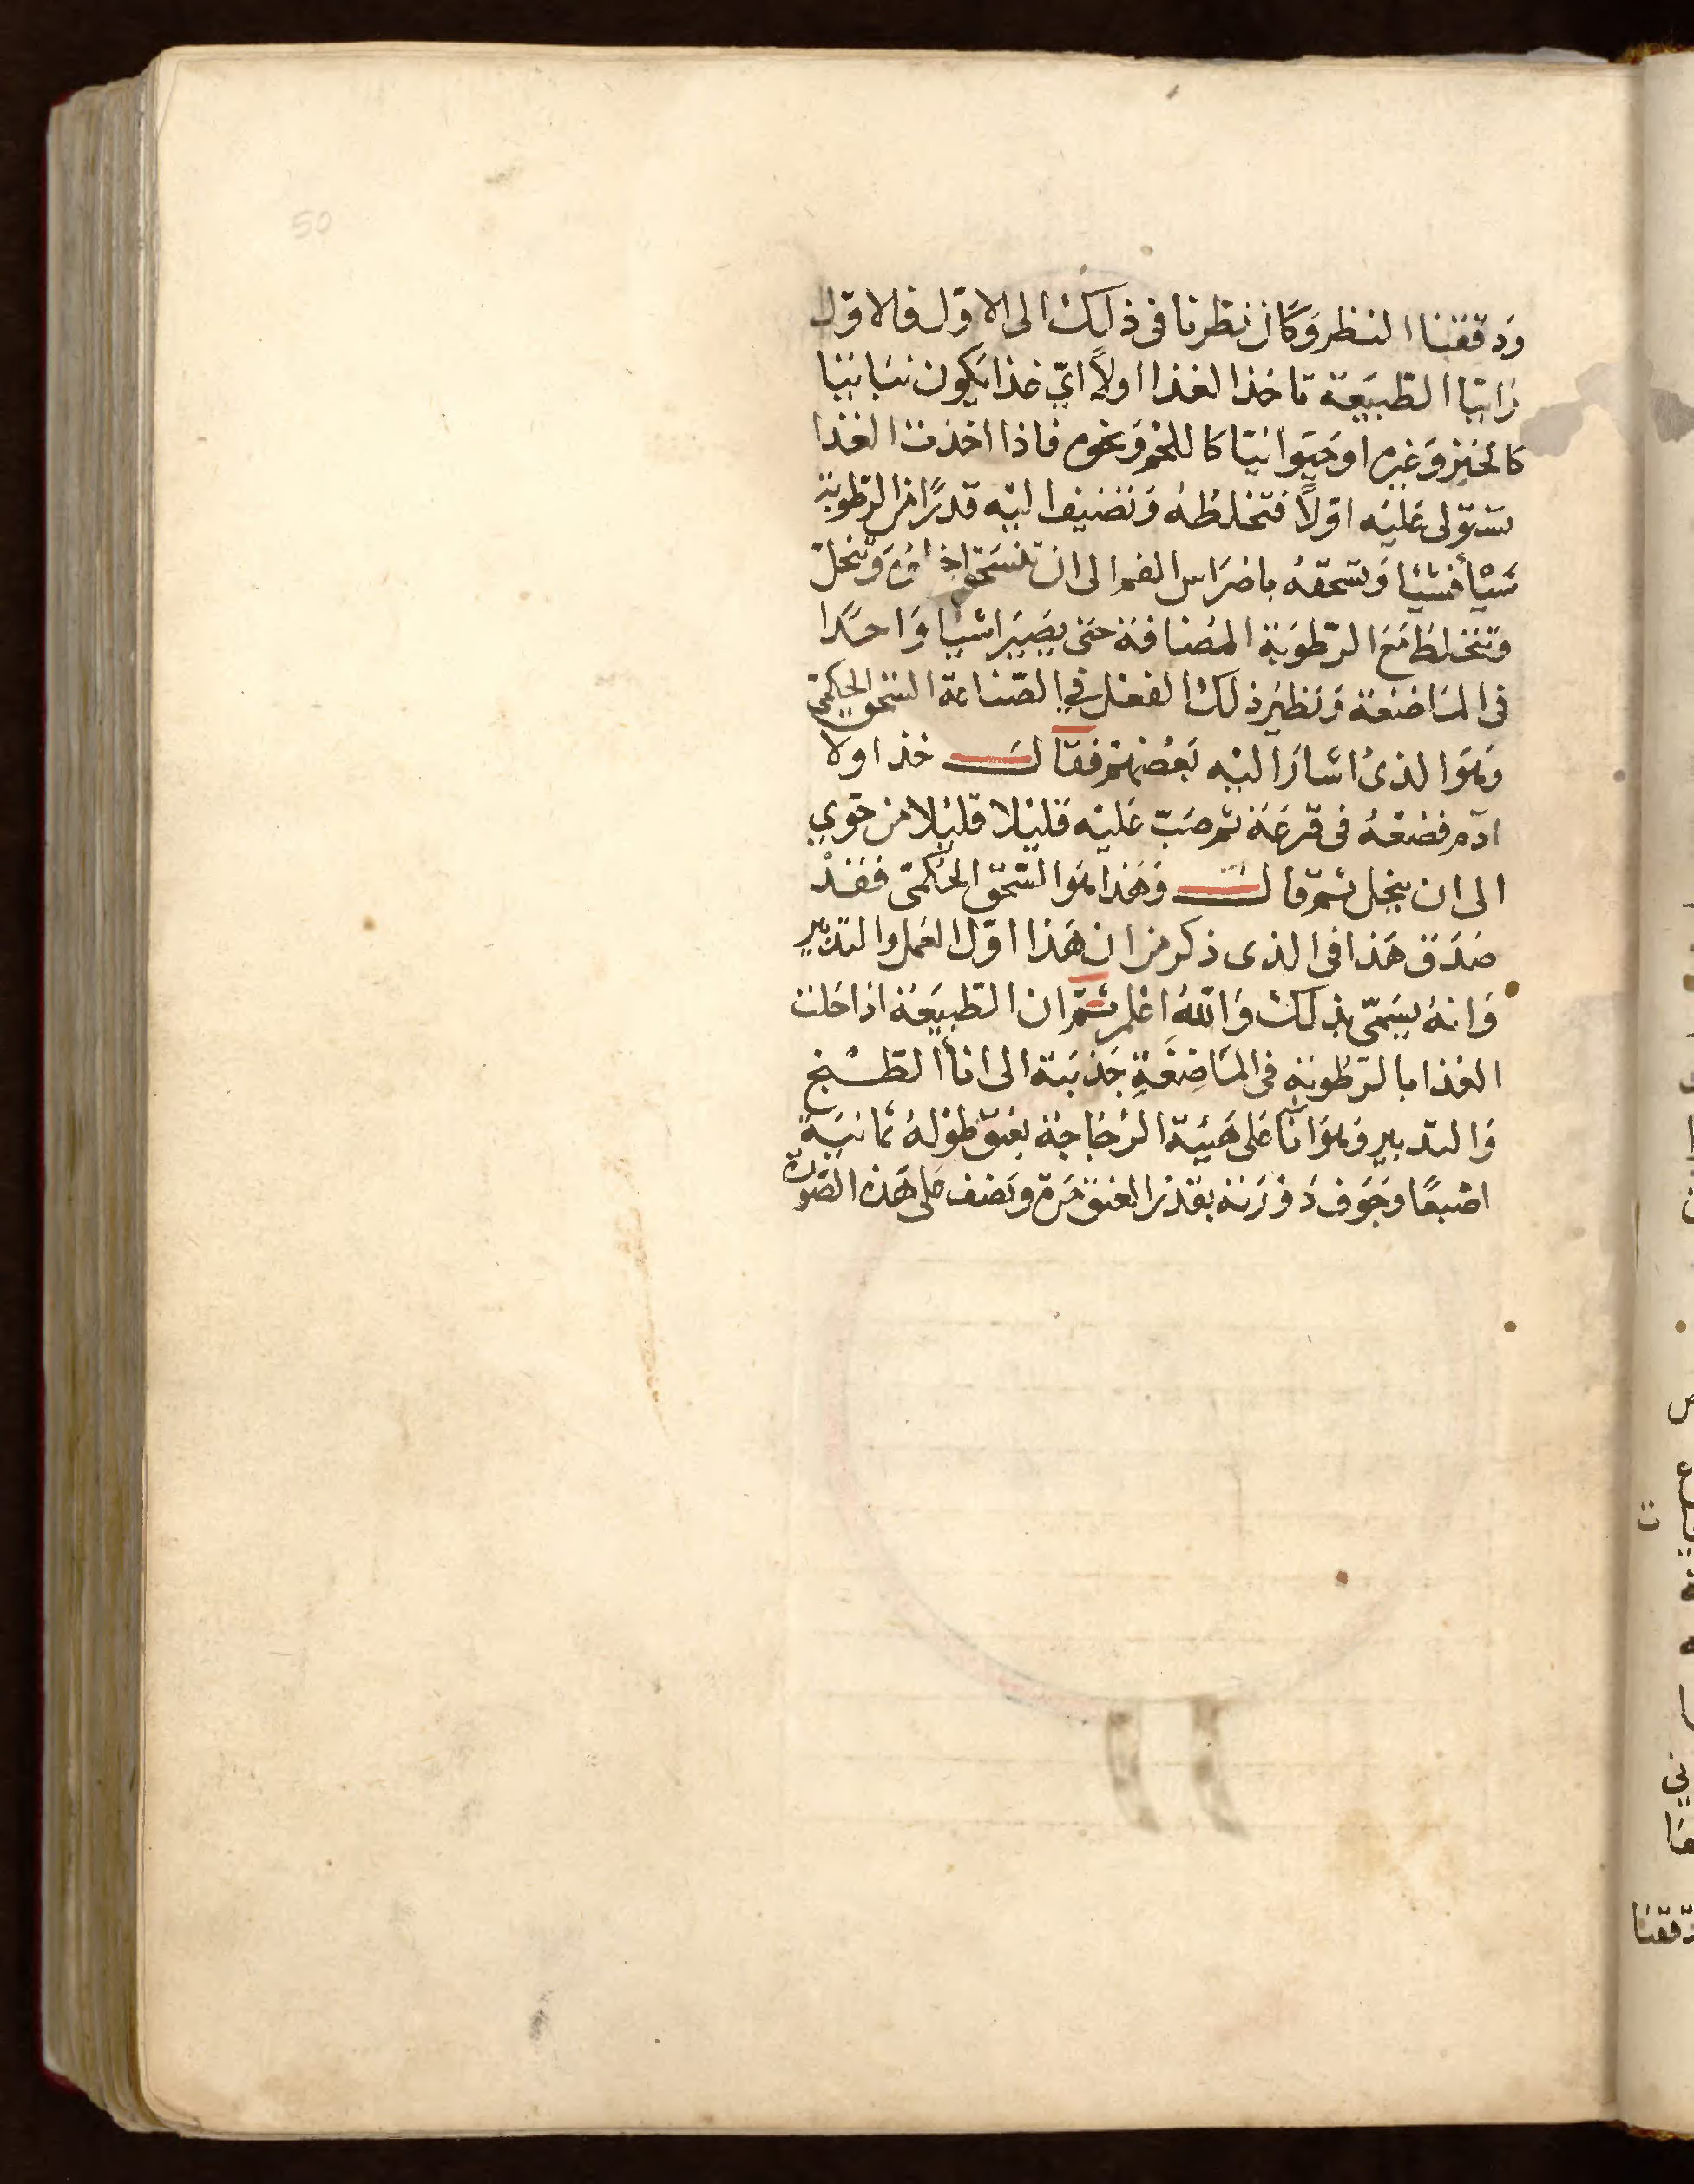 50
وَدققنا النظر وَكان نظرنا فى ذلك الى الاوّل فالاوّل
رَايّنا الطّبيعَة تاخذ الغذا اولاً ايّ غذا يكون نبَاتيّا
كالخبز وَغيره اوحَيوانيّا كاللحم وَنحوه فاذا اخذت الغذا
ستوّلى عَليْه اوّلاً فتخلطهُ وَتضيف اليْه قدرًا من الرّطوبَة
شيْأ فشيْأ وَتسحقهُ باضرَاس الفم الى ان تنسَحق وَتنحلّ
وَتختلط مَع الرّطوبَة المضافة حتى يصَير اشيا وَاحدًا
فى المَاضغة وَنظيْر ذلك الفعْل فى الصّناعة السّحق الحِكمىّ
وَهوَ الذىْ اشارَ اليْه بَعْضهُمْ فقال خذ اولا
ادَم فضعْهُ فى قرعَة ثم صَبّ عَليْه قليْلا قليْلا من حَوّي
الى ان ينحل ثمّ قال وَهَذا هُوَ السّحق الحُكمىّ فقدْ
صَدَق هَذا فى الذى ذكر من ان هَذا اوّل العَمل والتدْبير
وَانهُ يسَمّى بذلك وَاللّهُ اعْلم ثمّ ان الطّبيعَة اذا حَلت
الغذا بالرّطوبَةِ فى المَاضِغَةِ جَذبَتهُ الى اناأ الطّبْخ
وَالتدبير وَهوَ انآ عَلى هَيْئة الزّجَاجة بعُنق طوْلهُ ثمانيَة
اصْبعًا وجَوف دَوْرَته بقدْر العنق مَرة وَنصْف عَلى هَذه الصّورة